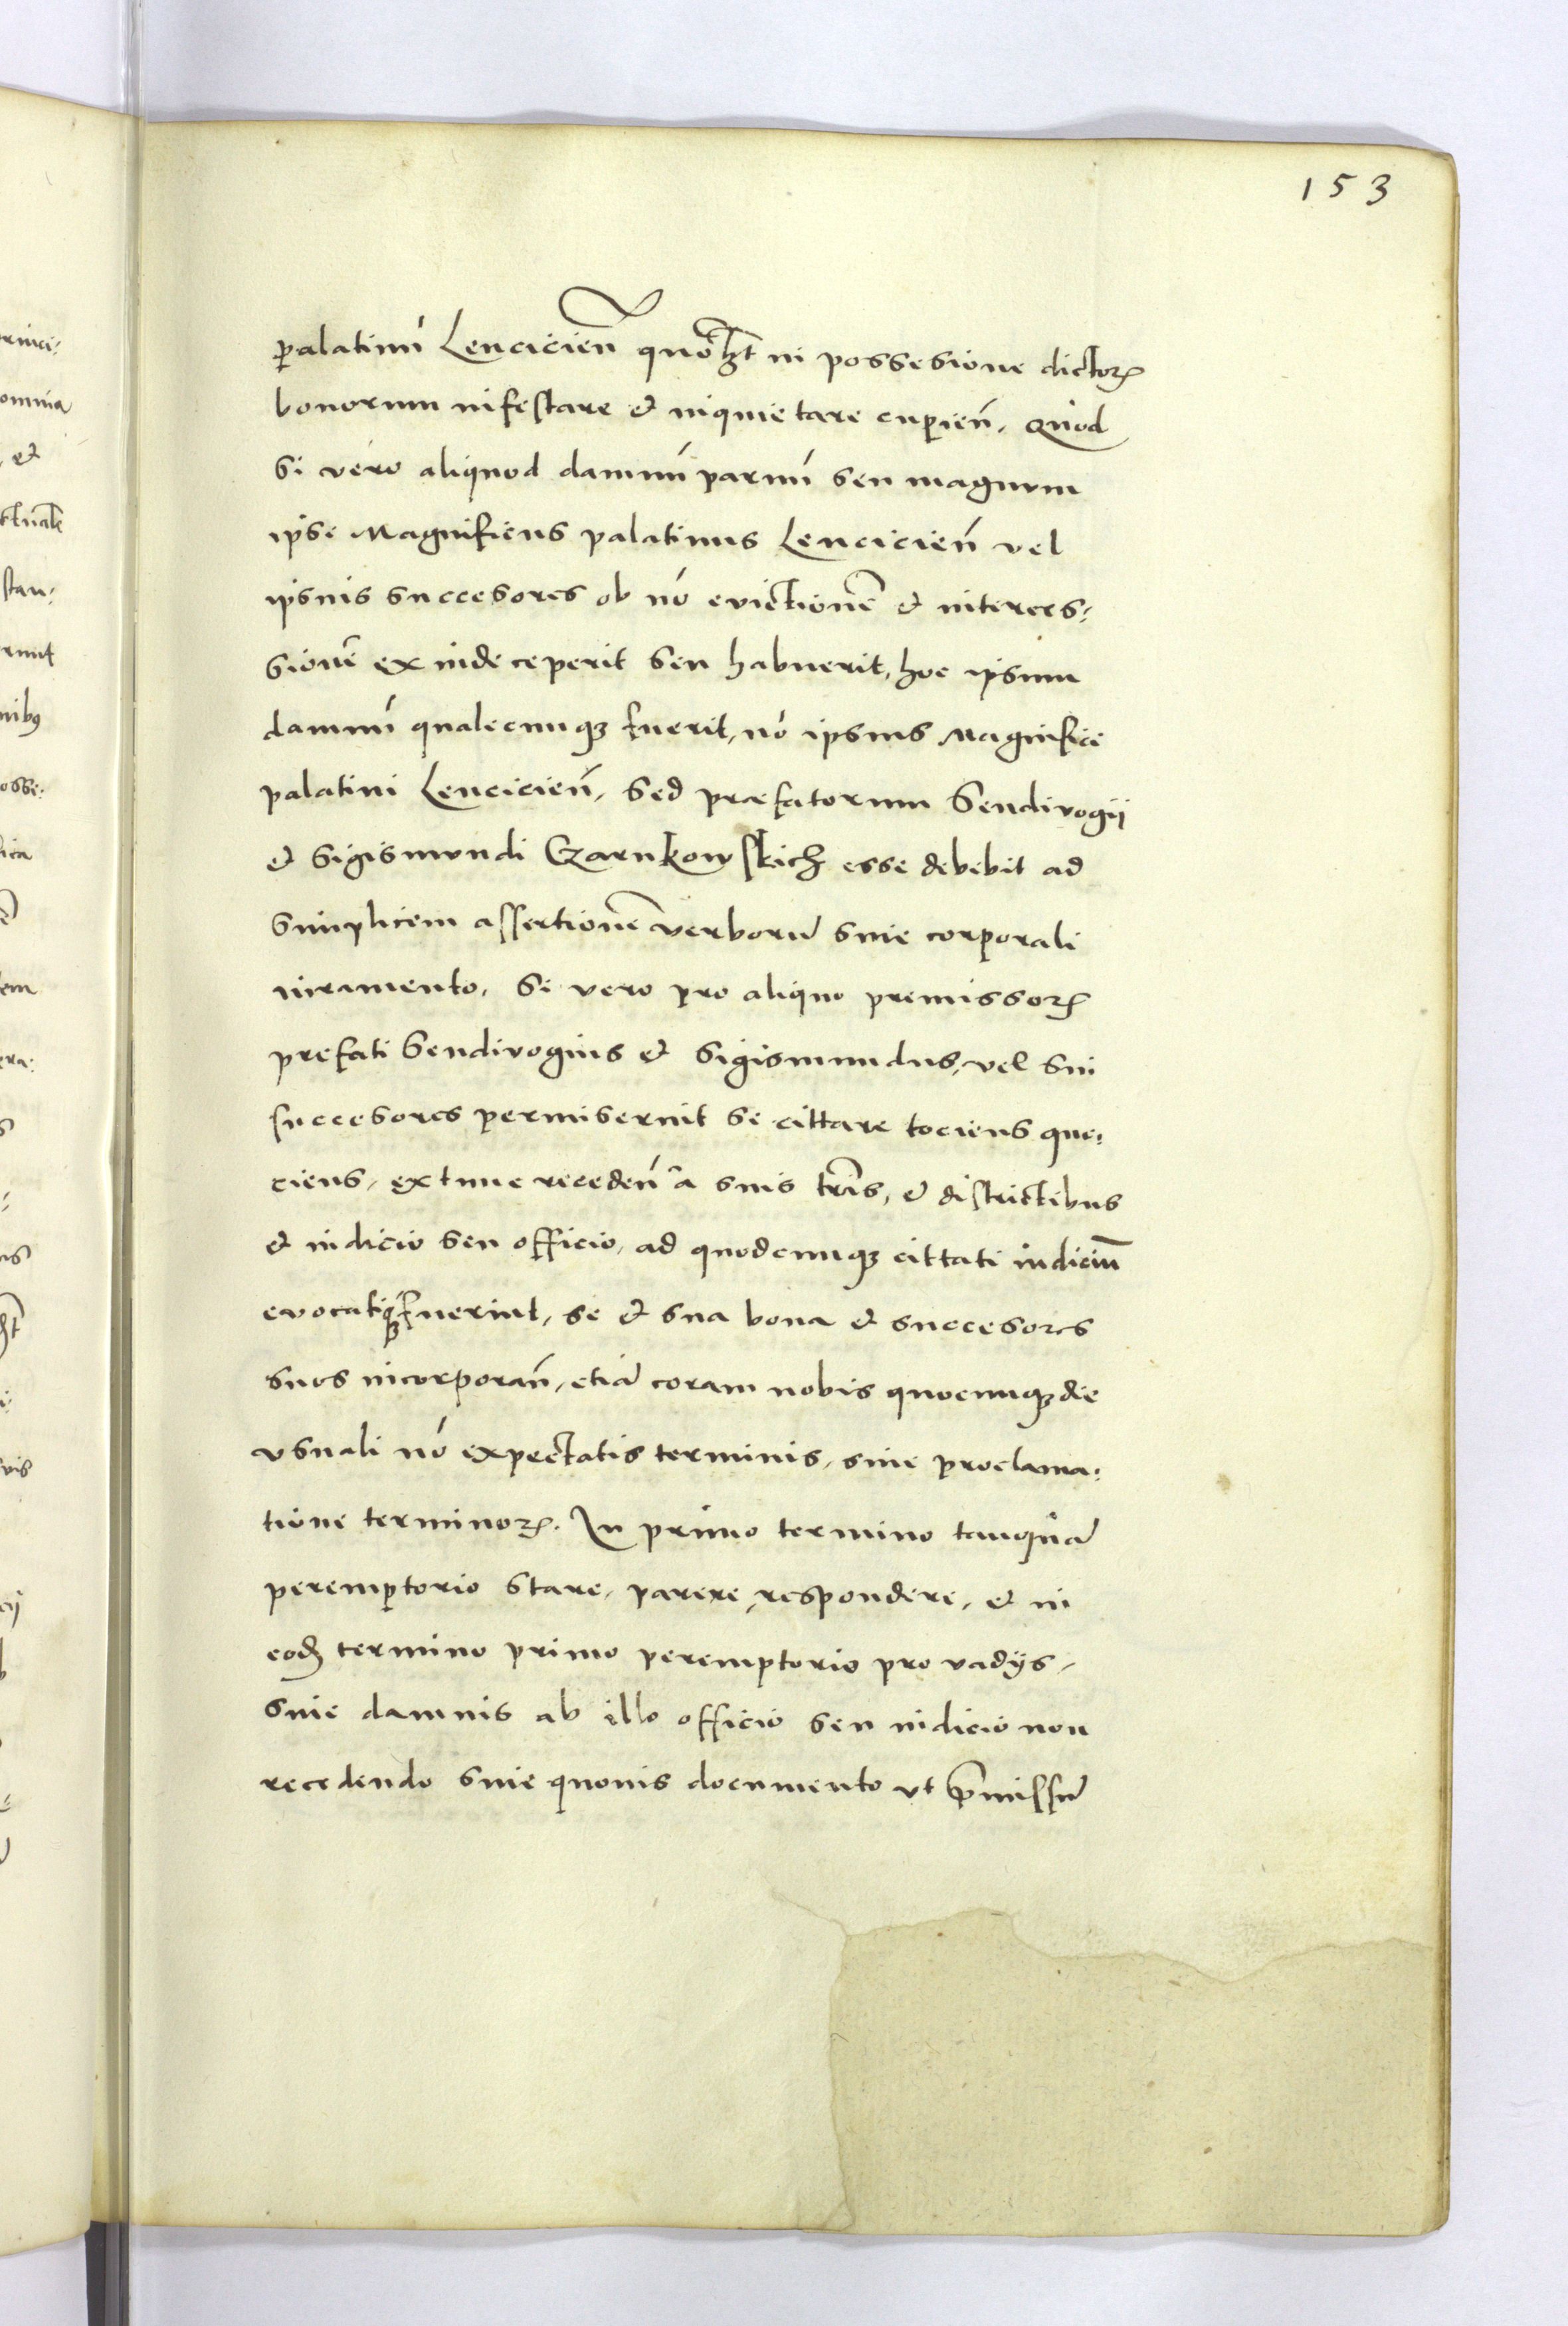 153
palatinũ Lenciciẽn quoꝫt in possesione dictoꝝ
bonorum infestare et inquietare cupieñ. Quod
si vero aliquod damnũ paruũ seu magnum
ipse Magnificus palatinus Lencicieñ vel
ipsius succesores ob nõ evictionẽ et interces-
sionẽ ex inde ceperit seu habuerit, hoc ipsum
damnũ qualecunqꝫ fuerit, nõ ipsius Magnifici
palatini Lencicieñ, sed præfatorum Sendivogij
et Sigismundi Czarnkowskich esse debebit ad
simplicem assertionẽ verborũ sine corporali
iuramento. Si vero pro aliquo premissoꝝ
prefati Sendivogius et Sigismundus, vel sui
succesores permiserint se cittare tociens quo-
ciens, extunc recedeñ a suis tr̃is, et districtibus
et iudicio seu officio, ad quodcunqꝫ cittati iudiciũ
evocatiqꝫ fuerint, se et sua bona et succesores
suos incorporañ, etiã coram nobis quocunqꝫ die
usuali nõ expectatis terminis, sine proclama-
tione terminoꝝ. In primo termino tanquã
peremptorio stare, parere, respondere, et in
eodẽ termino primo peremptorio pro vadijs,
sine damnis ab illo officio seu iudicio non
recedendo sine quovis documento ut p̃missũ